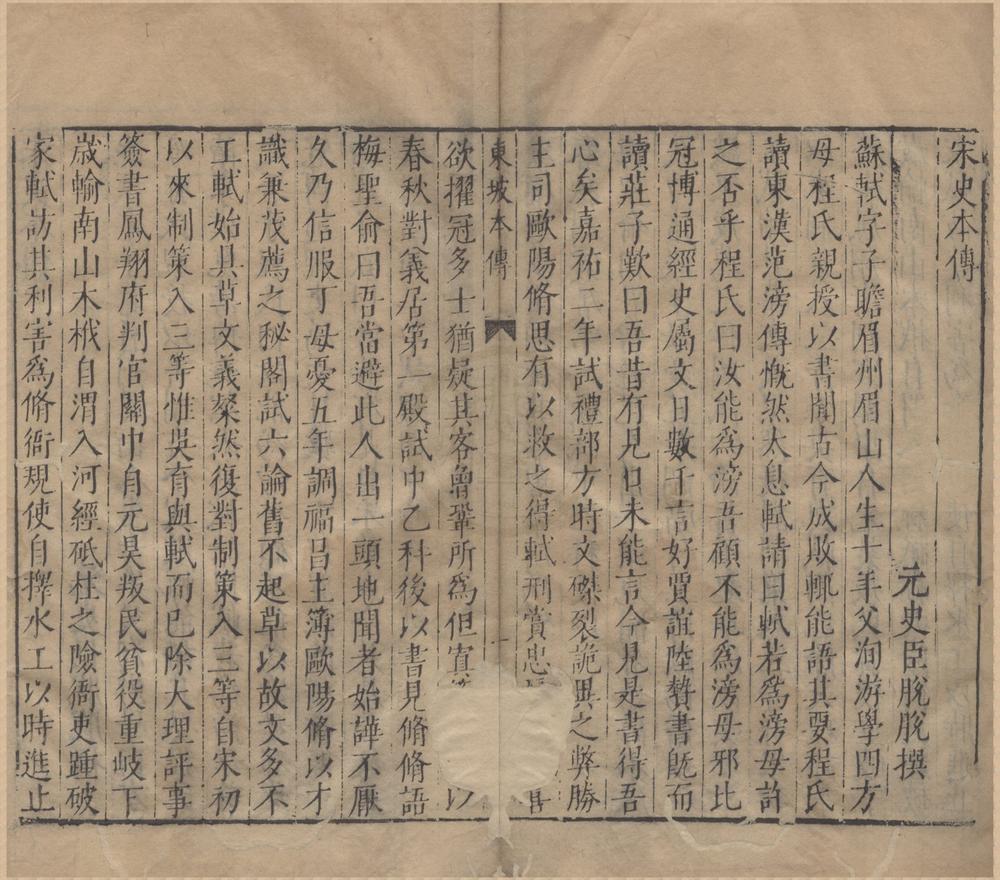 宋史本傳
元史臣脫脫撰
蘇軾字子瞻眉州眉山人生十年父洵游學四方
母程氏親授以書聞古今成敗輒能語其要程氏
讀東漢范滂傳慨然太息軾請曰軾若為滂母許
之否乎程氏曰汝能為滂吾顧不能為滂母邪比
冠博通經史屬文日數千言好賈誼陸贄書既而
讀莊子歎曰吾昔有見口未能言今見是書得吾
心矣嘉祐二年試禮部方時文磔裂詭異之弊勝
主司歐陽脩思有以救之得軾刑賞忠
東坡本傳
一
欲擢冠多士猶疑其客曾鞏所為但寘以
春秋對義居第一殿試中乙科後以書見脩脩語
梅聖俞曰吾當避此人出一頭地聞者始譁不厭
久乃信服丁母憂五年調福昌主簿歐陽脩以才
識兼茂薦之秘閣試六論舊不起草以故文多不
工軾始具草文義粲然復對制策入三等自宋初
以來制策入三等惟吳育與軾而已除大理評事
簽書鳳翔府判官關中自元昊叛民貧役重岐下
歲輸南山木栰自渭入河經砥柱之險衙吏踵破
家軾訪其利害為脩衙規使自擇水工以時進止